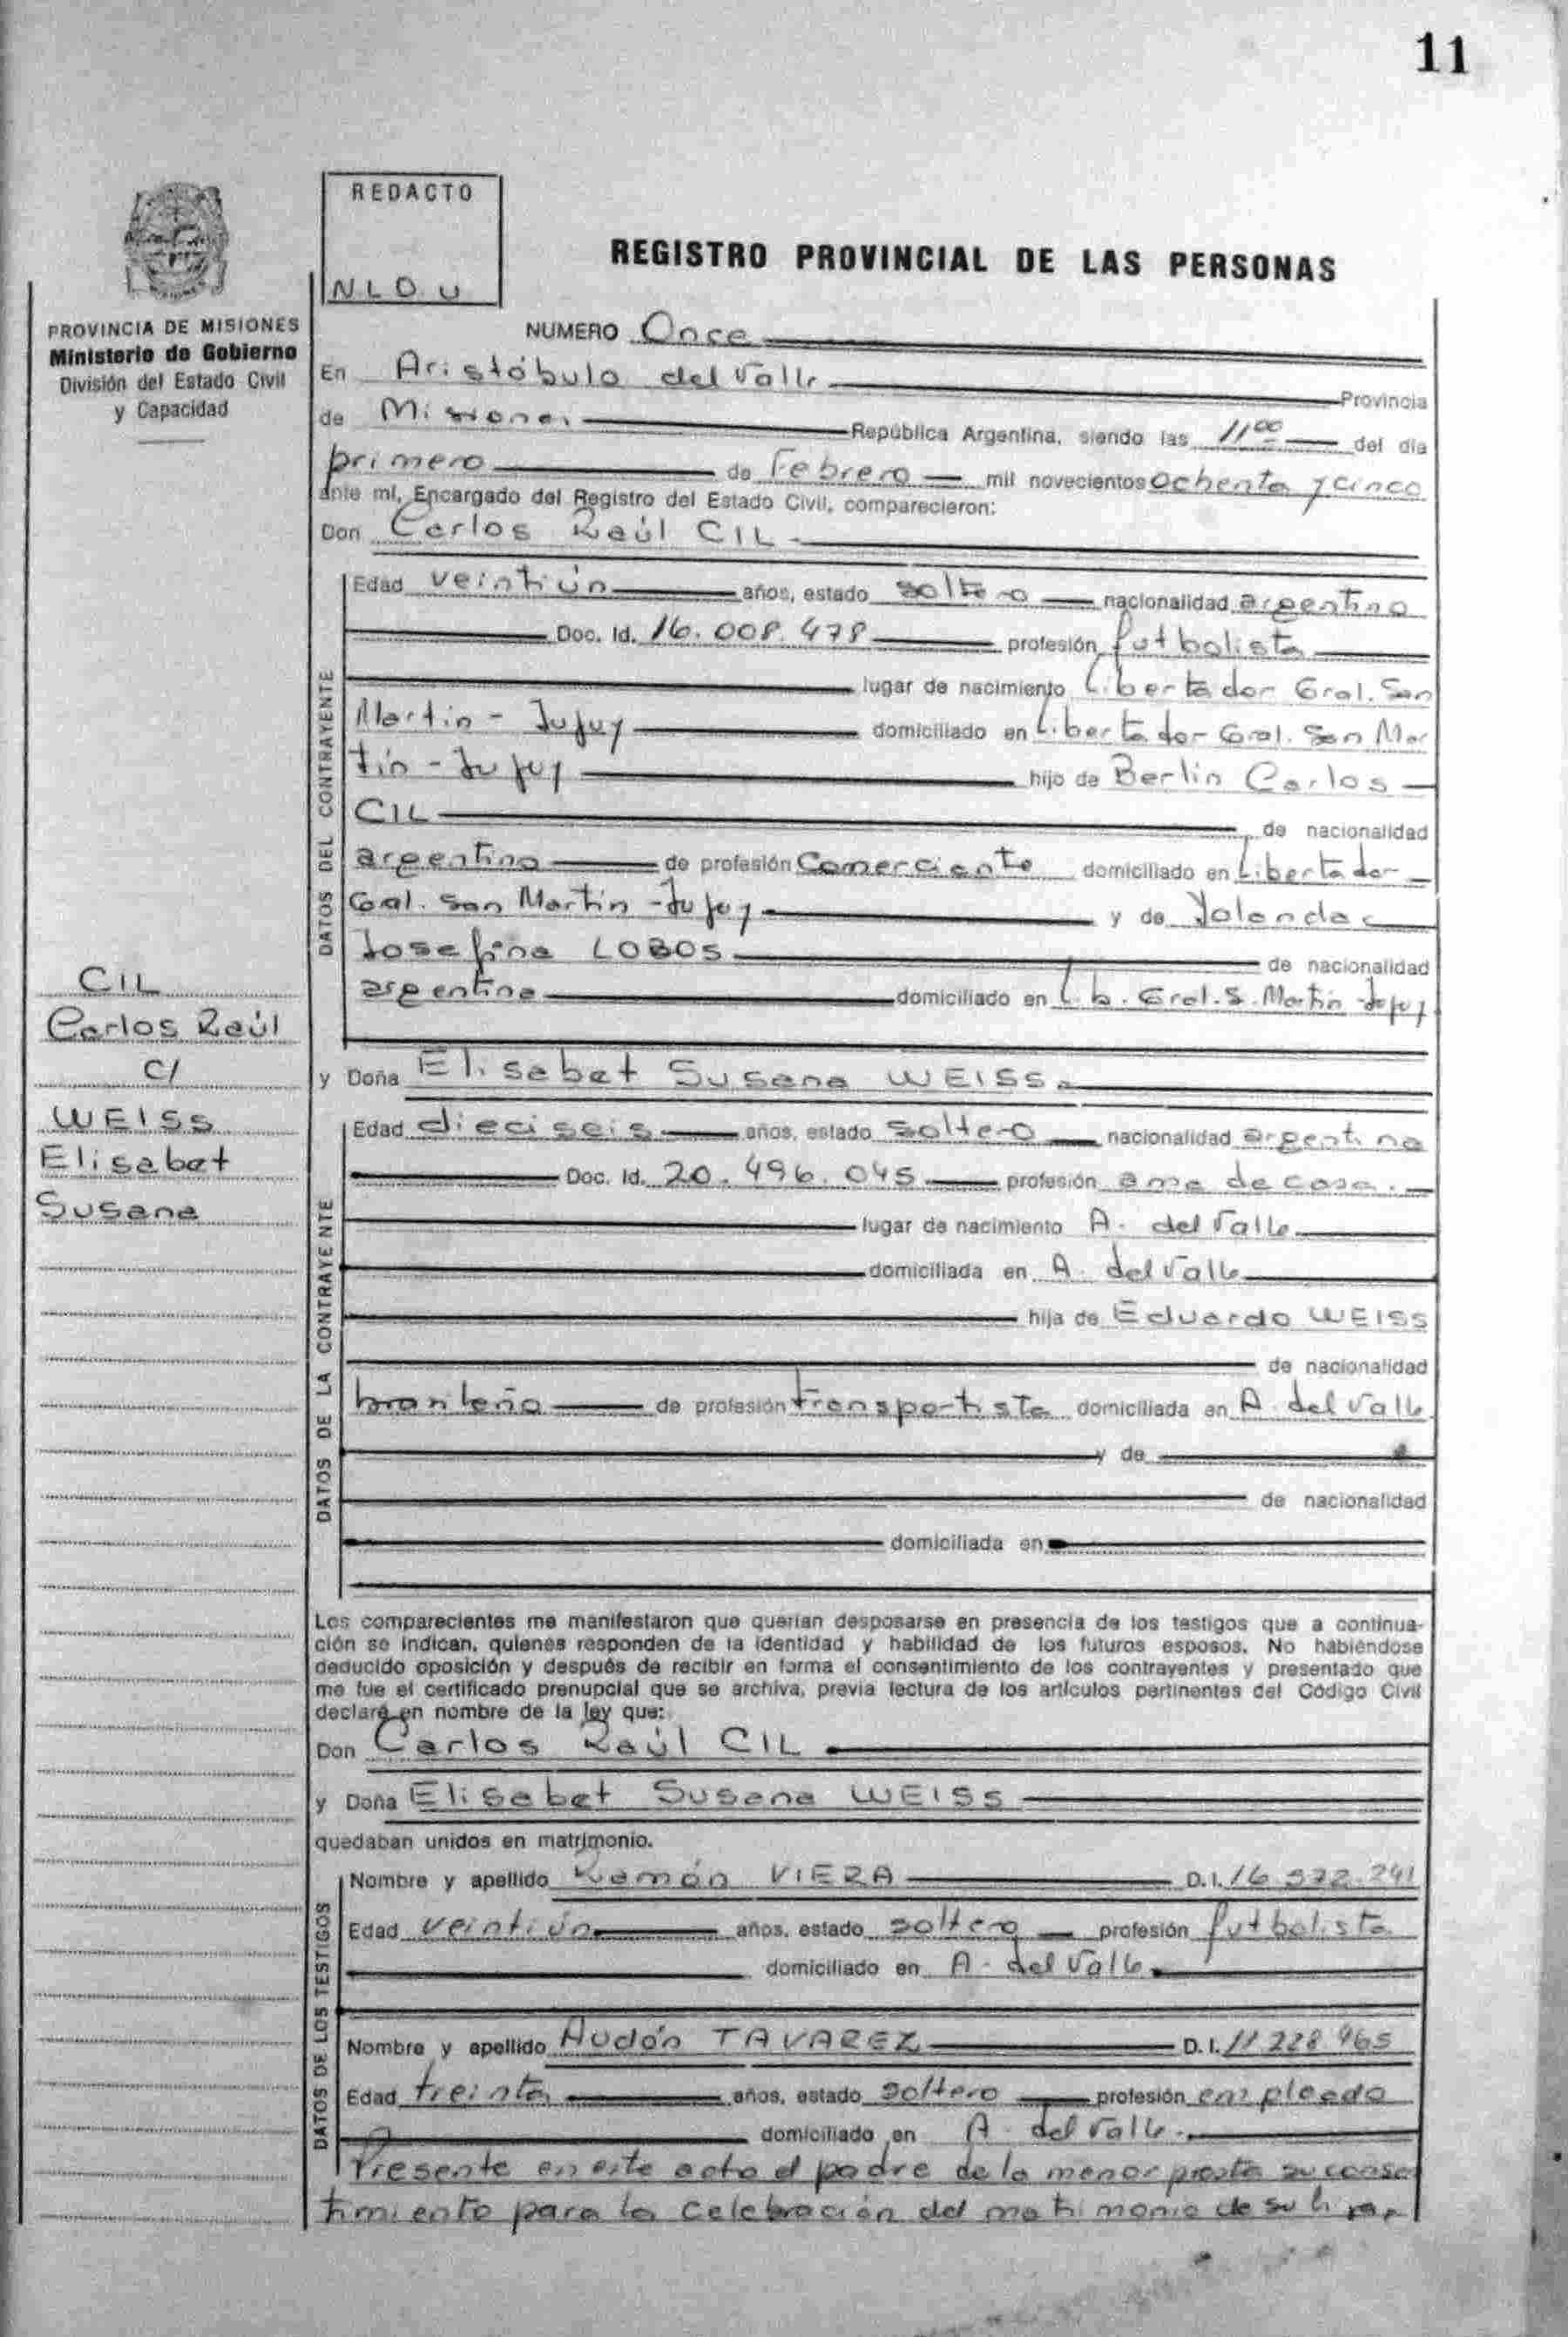 11
REDACTO
REGISTRO PROVINCIAL DE LAS PERSONAS
PROVINCIA DE MISIONES
Ministerio de Gobierno
División del Estado Civil
y Capacidad
NUMERO Once
En Aristóbulo del Valle Provincia
de Misiones República Argentina, siendo las 11,00 del día
primero de Febrero mil novecientos ochenta y cinco
ante mí, Encargado del Registro del Estado Civil, comparecieron:
Don Carlos Raúl CIL
DATOS DEL CONTRAYENTE
Edad veintiún años, estado soltero nacionalidad argentino
Doc. Id. 16.008.478 profesión futbolista
lugar de nacimiento Libertador Gral. San
Martin - Jujuy domiciliado en Libertador Gral. San Mar
tin - Jujuy hijo de Berlin Carlos
CIL de nacionalidad
argentino de profesión Comerciante domiciliado en Libertador
Gral. San Martin - Jujuy y de Yolanda
Josefina LOBOS de nacionalidad
argentina domiciliado en Lib. Gral. S. Martin - Jujuy
CIL
Carlos Raúl
C/
WEISS
Elisabet
Susana
y Doña Elisabet Susana WEISS
DATOS DE LA CONTRAYENTE
Edad dieciseis años, estado soltero nacionalidad argentina
Doc. Id. 20.496.045 profesión ama de casa.
lugar de nacimiento A. del Valle
domiciliada en A. del Valle
hija de Eduardo WEISS
de nacionalidad
brasileño de profesión transportista domiciliada en A. del Valle
y de
de nacionalidad
domiciliada en
Los comparecientes me manifestaron que querían desposarse en presencia de los testigos que a continua-
ción se indican, quienes responden de la identidad y habilidad de los futuros esposos. No habiéndose
deducido oposición y después de recibir en forma el consentimiento de los contrayentes y presentado que
me fue el certificado prenupcial que se archiva, previa lectura de los artículos pertinentes del Código Civil
declaré en nombre de la ley que:
Don Carlos Raúl CIL
y Doña Elisabet Susana WEISS
quedaban unidos en matrimonio.
DATOS DE LOS TESTIGOS
Nombre y apellido Ramón VIERA D.I. 16
Edad veintiún años, estado soltero profesión futbolista
domiciliado en A. del Valle
Nombre y apellido Audón TAVAREZ D.I. 11.228.965
Edad treinta años, estado soltero profesión empleado
domiciliado en A. del Valle.
Presente en este acto el padre de la menor presta su consen
timiento para la celebración del matrimonio de su hija